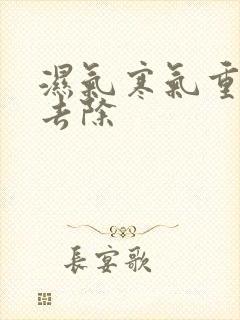 濕氣寒氣重
去除
長宴歌